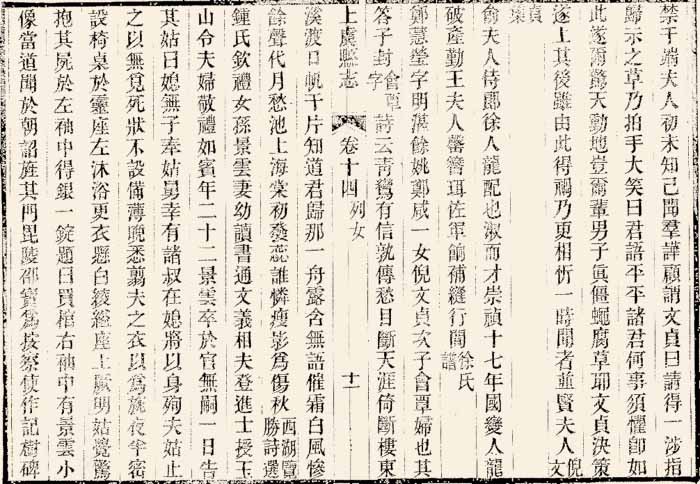 禁干端夫人初未知己聞羣譁顧謂文貞曰請得一涉指
歸示之草乃拍手大笑曰君語平平諸君何事須懼卽如
此遂爾驚天動地豈爾輩男子眞僵蠅腐草耶文貞決策
遂上其後雖由此得禍乃更相忻一時聞者並賢夫人倪文
貞集
俞夫人侍郞徐人龍配也淑而才崇禎十七年國變人龍
破產勤王夫人罄簪珥佐軍餉補縫行間徐氏譜
鄭慧瑩字明湛餘姚鄭咸一女倪文貞次子會覃婦也其
答子封會覃字詩云靑鸞有信孰傳愁目斷天涯倚斷樓東
上虞縣志 卷十四 列女 十一
溪渡口帆千片知道君歸那一舟露含無語催霜白風慘
餘聲代月愁池上海棠初發蕊誰憐瘦影爲傷秋西湖覽勝詩選
鍾氏欽禮女孫景雲妻幼讀書通文義相夫登進士授玉
山令夫婦敬禮如賓年二十二景雲卒於官無嗣一日告
其姑曰媳無子奉姑舅幸有諸叔在媳將以身殉夫姑止
之以無覓死狀不設備薄晚悉翦夫之衣以爲旒夜半密
設椅桌於靈座左沐浴更衣懸白綾經座上厥明姑覺驚
抱其屍於左袖中得銀一錠題曰買棺右袖中有景雲小
像當道聞於朝詔旌其門毘陵邵寶爲按察使作記樹碑